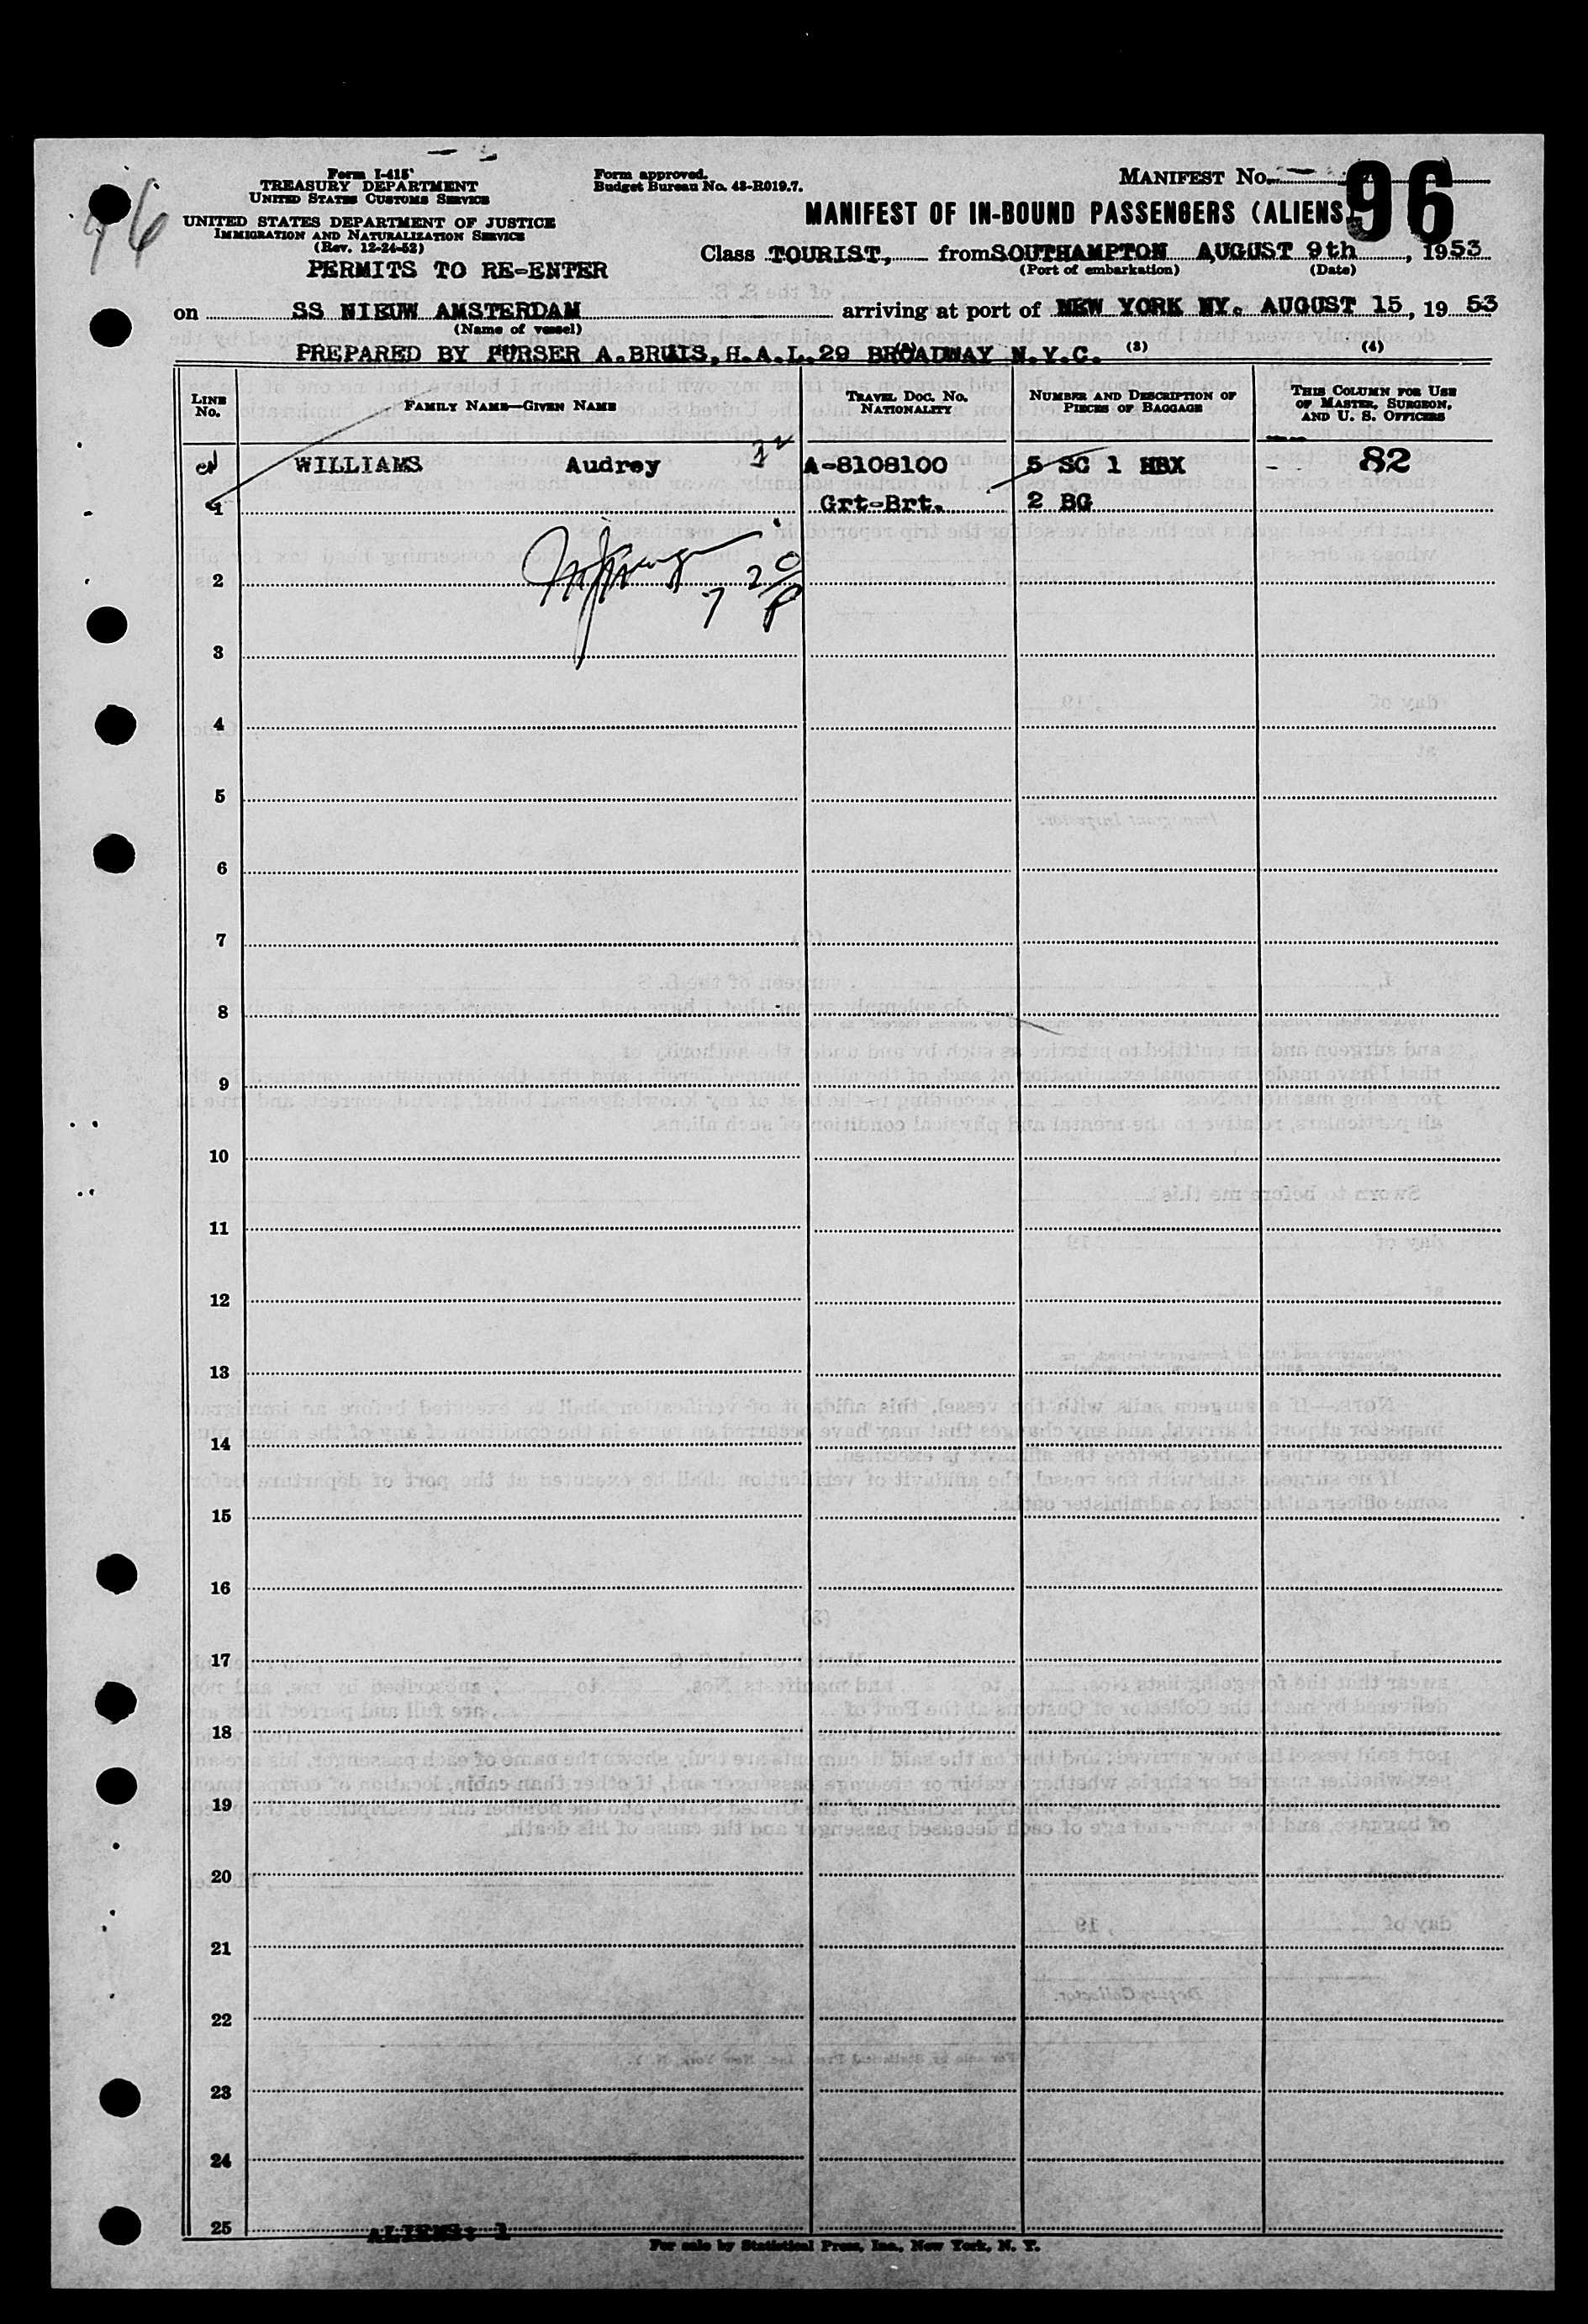 96
Form I-415
TREASURY DEPARTMENT
UNITED STATES CUSTOMS SERVICE
UNITED STATES DEPARTMENT OF JUSTICE
IMMIGRATION AND NATURALIZATION SERVICE
(Rev. 12-24-52)
PERMITS TO RE-ENTER
Form approved.
Budget Bureau No. 43-R019.7.
MANIFEST No. 96
MANIFEST OF IN-BOUND PASSENGERS (ALIENS)
Class TOURIST, from SOUTHAMPTON AUGUST 9th, 1953
(Port of embarkation) (Date)
on SS NIEUW AMSTERDAM arriving at port of NEW YORK NY. AUGUST 15, 19 53
(Name of vessel)
PREPARED BY PURSER A.BRUIS, H.A.L. 29 BROADWAY N.Y.C. (3) (4)
LINE No. FAMILY NAME—GIVEN NAME TRAVEL DOC. NO. NATIONALITY NUMBER AND DESCRIPTION OF PIECES OF BAGGAGE THIS COLUMN FOR USE OF MASTER, SURGEON, AND U. S. OFFICERS
WILLIAMS Audrey A-8108100 5 SC 1 HBX 82
1 Grt-Brt. 2 BG
2
3
4
5
6
7
8
9
10
11
12
13
14
15
16
17
18
19
20
21
22
23
24
25 ALIENS: 1
For sale by Statistical Press, Inc., New York, N. Y.